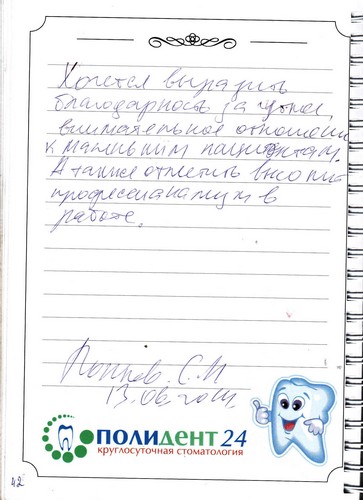 Хочется выразить
благодарность за чуткое,
внимательное отношение
к маленьким пациентам.
А также отметить высокий
профессионализм в
работе.
Попков С.Н
13.08.2014.
ПОЛИДЕНТ 24
круглосуточная стоматология
42